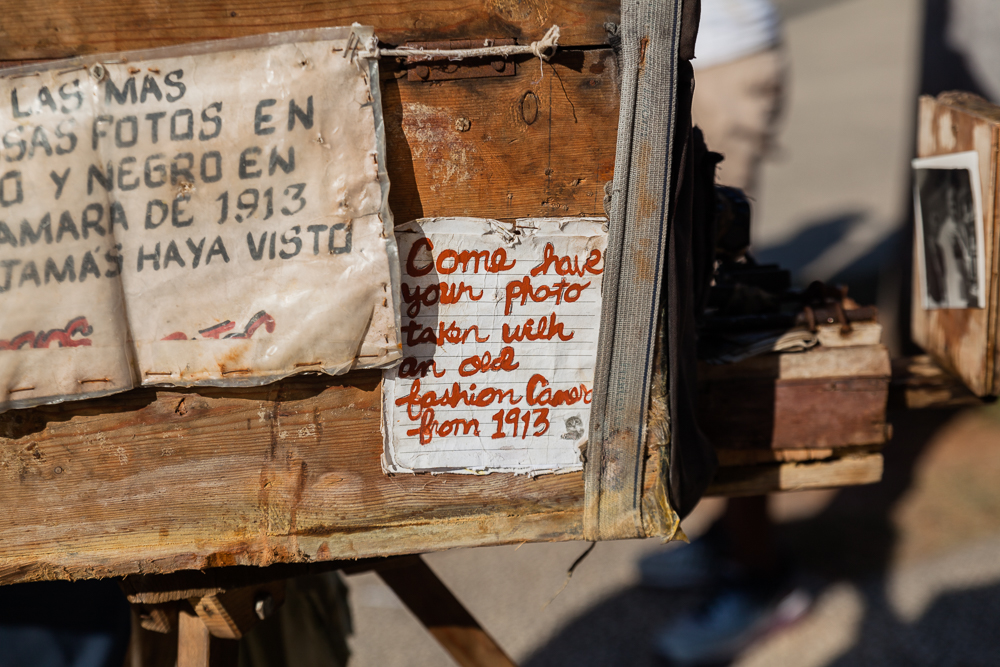 LAS MAS
SAS FOTOS EN
O Y NEGRO EN
AMARA DE 1.913
JAMÁS HAYA VISTO
Come have
your photo
taken with
an old
fashion Camer
from 1913